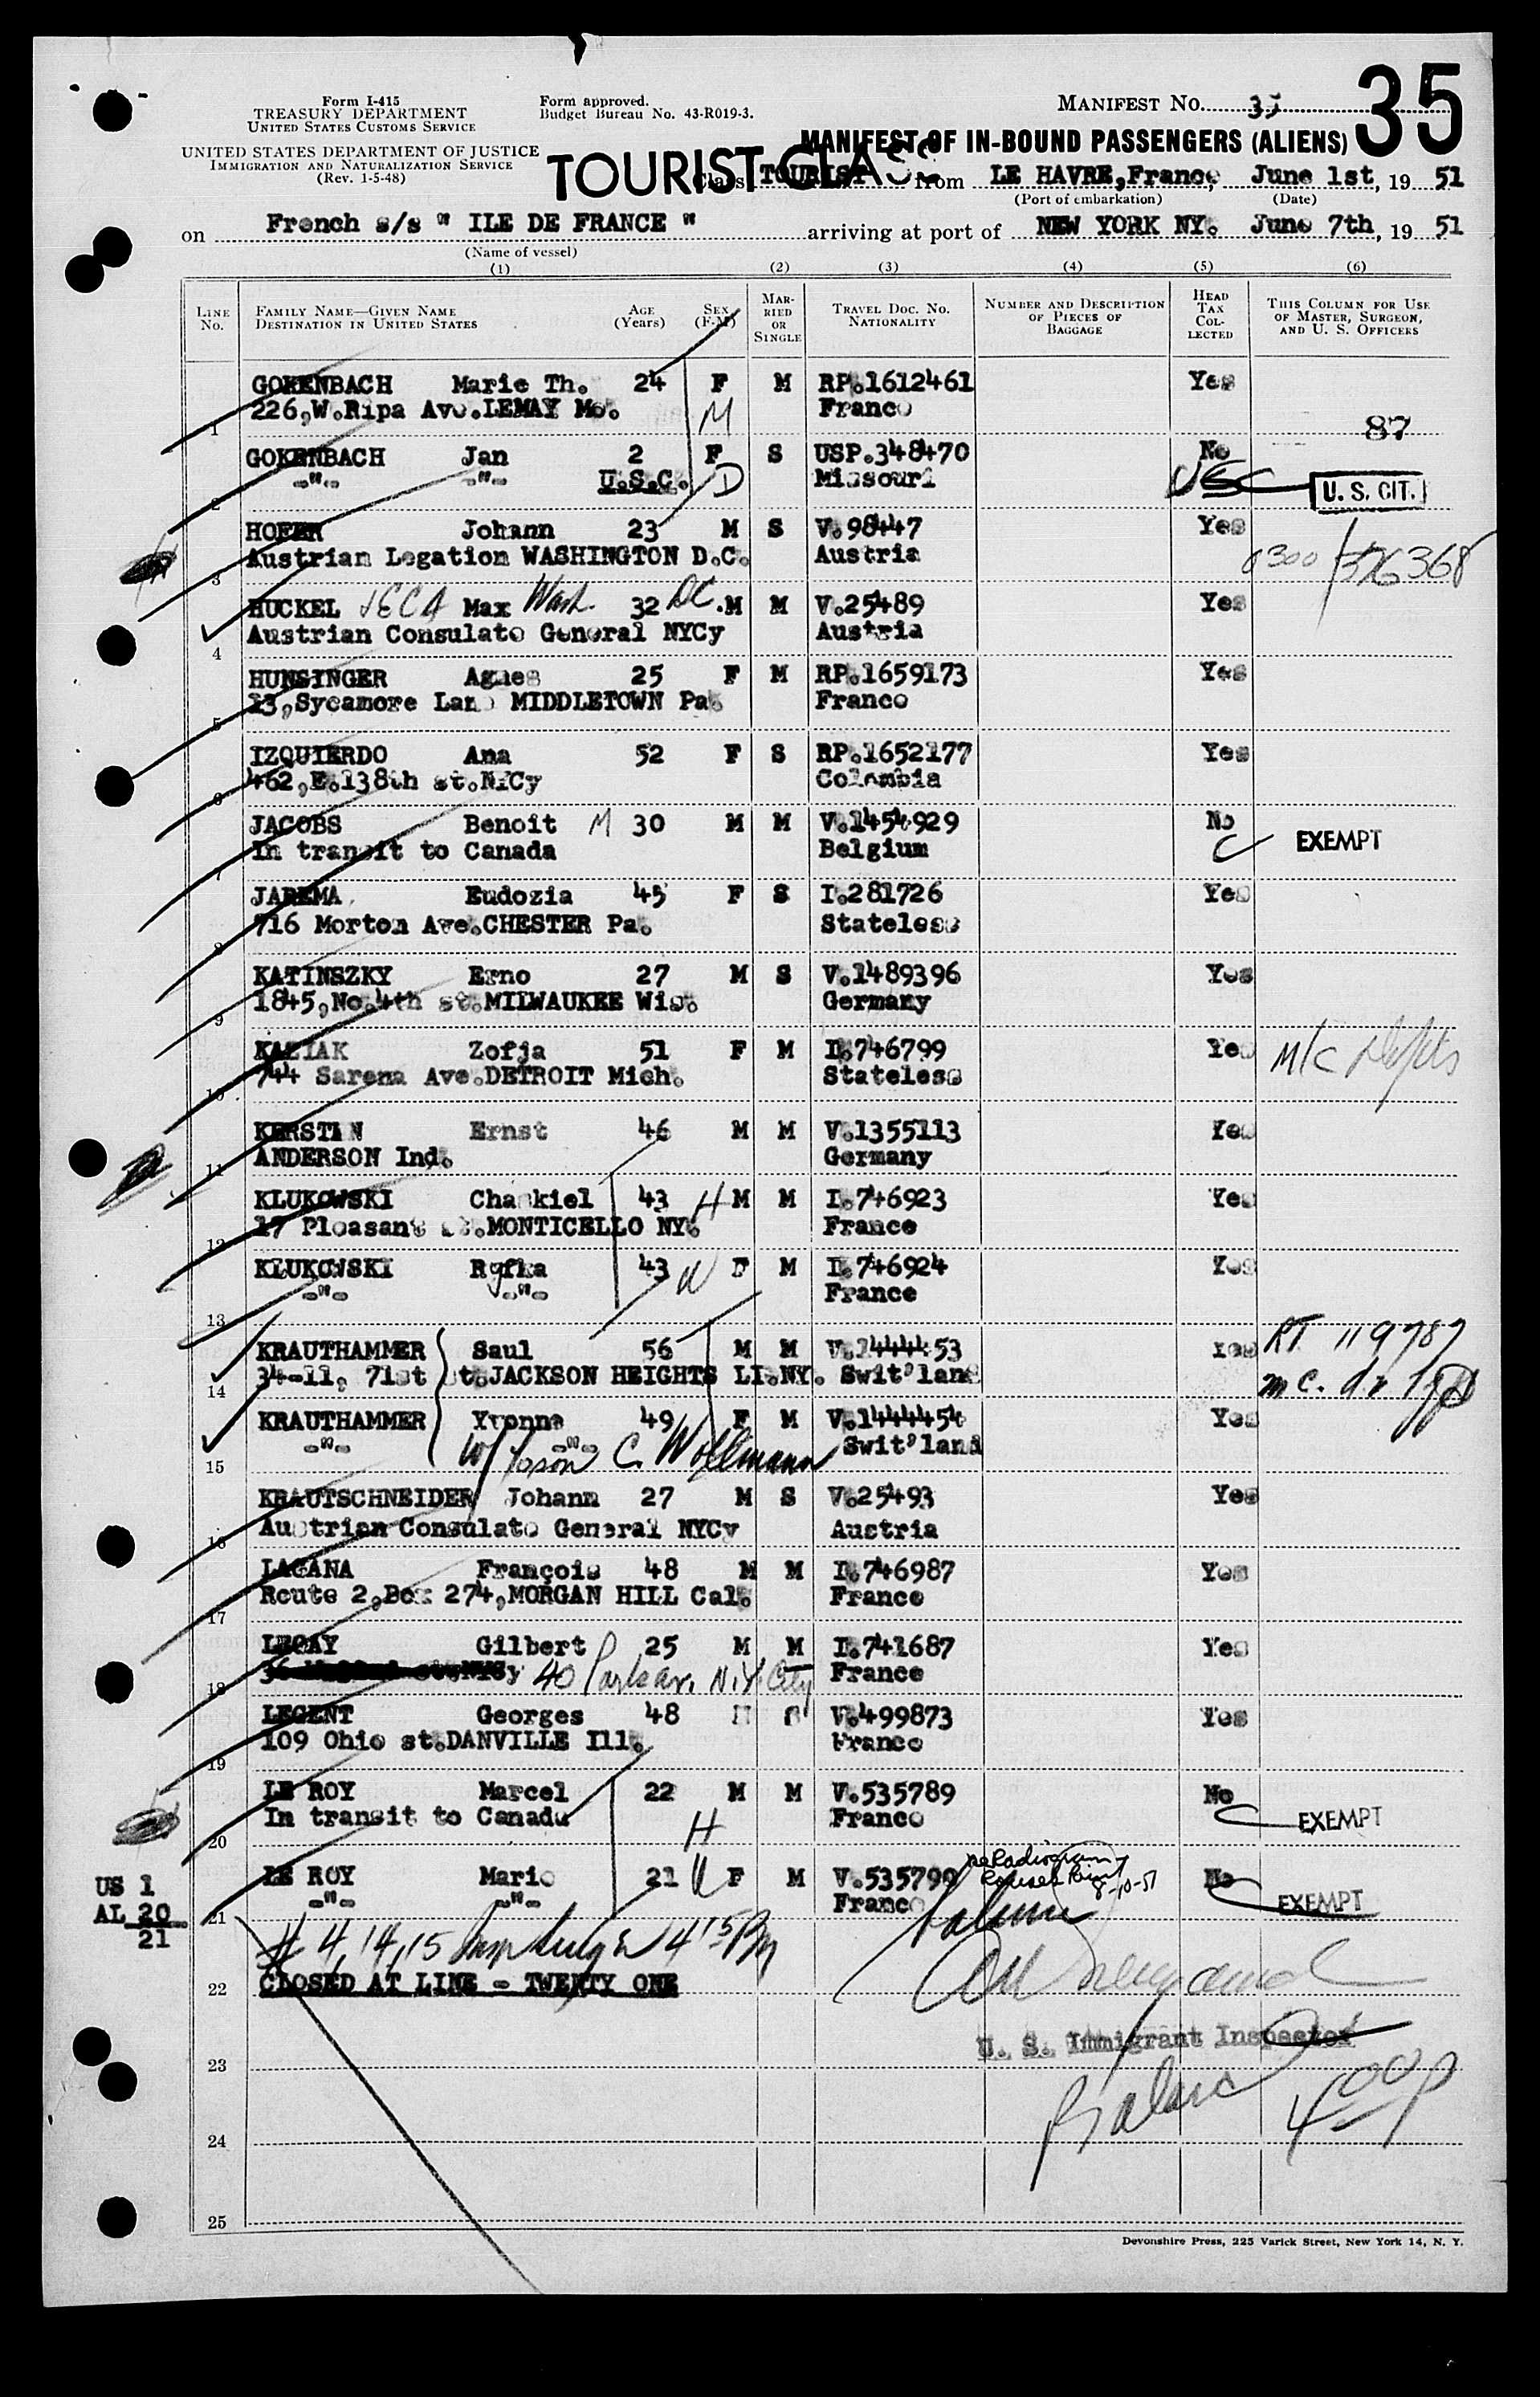 Form I-415
TREASURY DEPARTMENT
UNITED STATES CUSTOMS SERVICE
UNITED STATES DEPARTMENT OF JUSTICE
IMMIGRATION AND NATURALIZATION SERVICE
(Rev. 1-5-48)
Form approved.
Budget Bureau No. 43-R019-3.
MANIFEST No. 35
35
MANIFEST OF IN-BOUND PASSENGERS (ALIENS)
TOURIST CLASS
Class TOURIST from LE HAVRE,France, June 1st, 19 51
(Port of embarkation) (Date)
on French s/s " ILE DE FRANCE " arriving at port of NEW YORK NY. June 7th, 19 51
(Name of vessel)
(1) (2) (3) (4) (5) (6)
LINE No. FAMILY NAME—GIVEN NAME DESTINATION IN UNITED STATES AGE (Years) SEX (F-M) MARRIED OR SINGLE TRAVEL DOC. NO. NATIONALITY NUMBER AND DESCRIPTION OF PIECES OF BAGGAGE HEAD TAX COLLECTED THIS COLUMN FOR USE OF MASTER, SURGEON, AND U. S. OFFICERS
GOKENBACH Marie Th. 24 F M RP.1612461 Yes
1 226,W.Ripa Ave.LEMAY Mo. M France 87
GOKENBACH Jan 2 F S USP.348470 No
2 -"- -"- U.S.C. D Missouri USC U. S. CIT.
HOFER Johann 23 M S V.98447 Yes
3 Austrian Legation WASHINGTON D.C. Austria 0300 / 376368
HUCKEL ECA Max Wash. 32 DC. M M V.25489 Yes
4 Austrian Consulate General NYCy Austria
HUNSINGER Agnes 25 F M RP.1659173 Yes
5 13,Sycamore Lane MIDDLETOWN Pa. France
IZQUIERDO Ana 52 F S RP.1652177 Yes
6 462,E.138th st.NYCy Colombia
JACOBS Benoit M 30 M M V.1454929 No
7 In transit to Canada Belgium EXEMPT
JAREMA Eudozia 45 F S I.281726 Yes
8 716 Morton Ave.CHESTER Pa. Stateless
KATINSZKY Erno 27 M S V.1489396 Yes
9 1845,No.4th st.MILWAUKEE Wis. Germany
KAZIAK Zofja 51 F M I.746799 Yes M/C
10 744 Sarena Ave.DETROIT Mich. Stateless
KERSTAN Ernst 46 M M V.1355113 Yes
11 ANDERSON Ind. Germany
KLUKOWSKI Chaskiel 43 H M M I.746923 Yes
12 17 Pleasant st.MONTICELLO NY. France
KLUKOWSKI Ryfka 43 W F M I.746924 Yes
13 -"- -"- France
KRAUTHAMMER Saul 56 M M V.1444453 Yes RT 119787
14 34-11, 71st st.JACKSON HEIGHTS LI.NY. Swit'land
KRAUTHAMMER Yvonne 49 F M V.1444454 Yes
15 -"- -"- Swit'land
KRAUTSCHNEIDER Johann 27 M S V.25493 Yes
16 Austrian Consulate General NYCy Austria
LAGANA François 48 M M I.746987 Yes
17 Route 2,Box 274,MORGAN HILL Cal. France
LEGAY Gilbert P 25 M M I.741687 Yes
18 40 Park av. N.Y. City France
LEGENT Georges 48 M S V.499873 Yes
19 109 Ohio st.DANVILLE Ill. France
LE ROY Marcel 22 M M V.535789 No
20 In transit to Canada H France EXEMPT
LE ROY Marie 21 W F M V.535799 No
21 -"- -"- France EXEMPT
8-10-51
US 1
AL 20
21
# 4, 14, 15
22 CLOSED AT LINE - TWENTY ONE
U. S. Immigrant Inspector
23
4 00 p
24
25
Devonshire Press, 225 Varick Street, New York 14, N. Y.